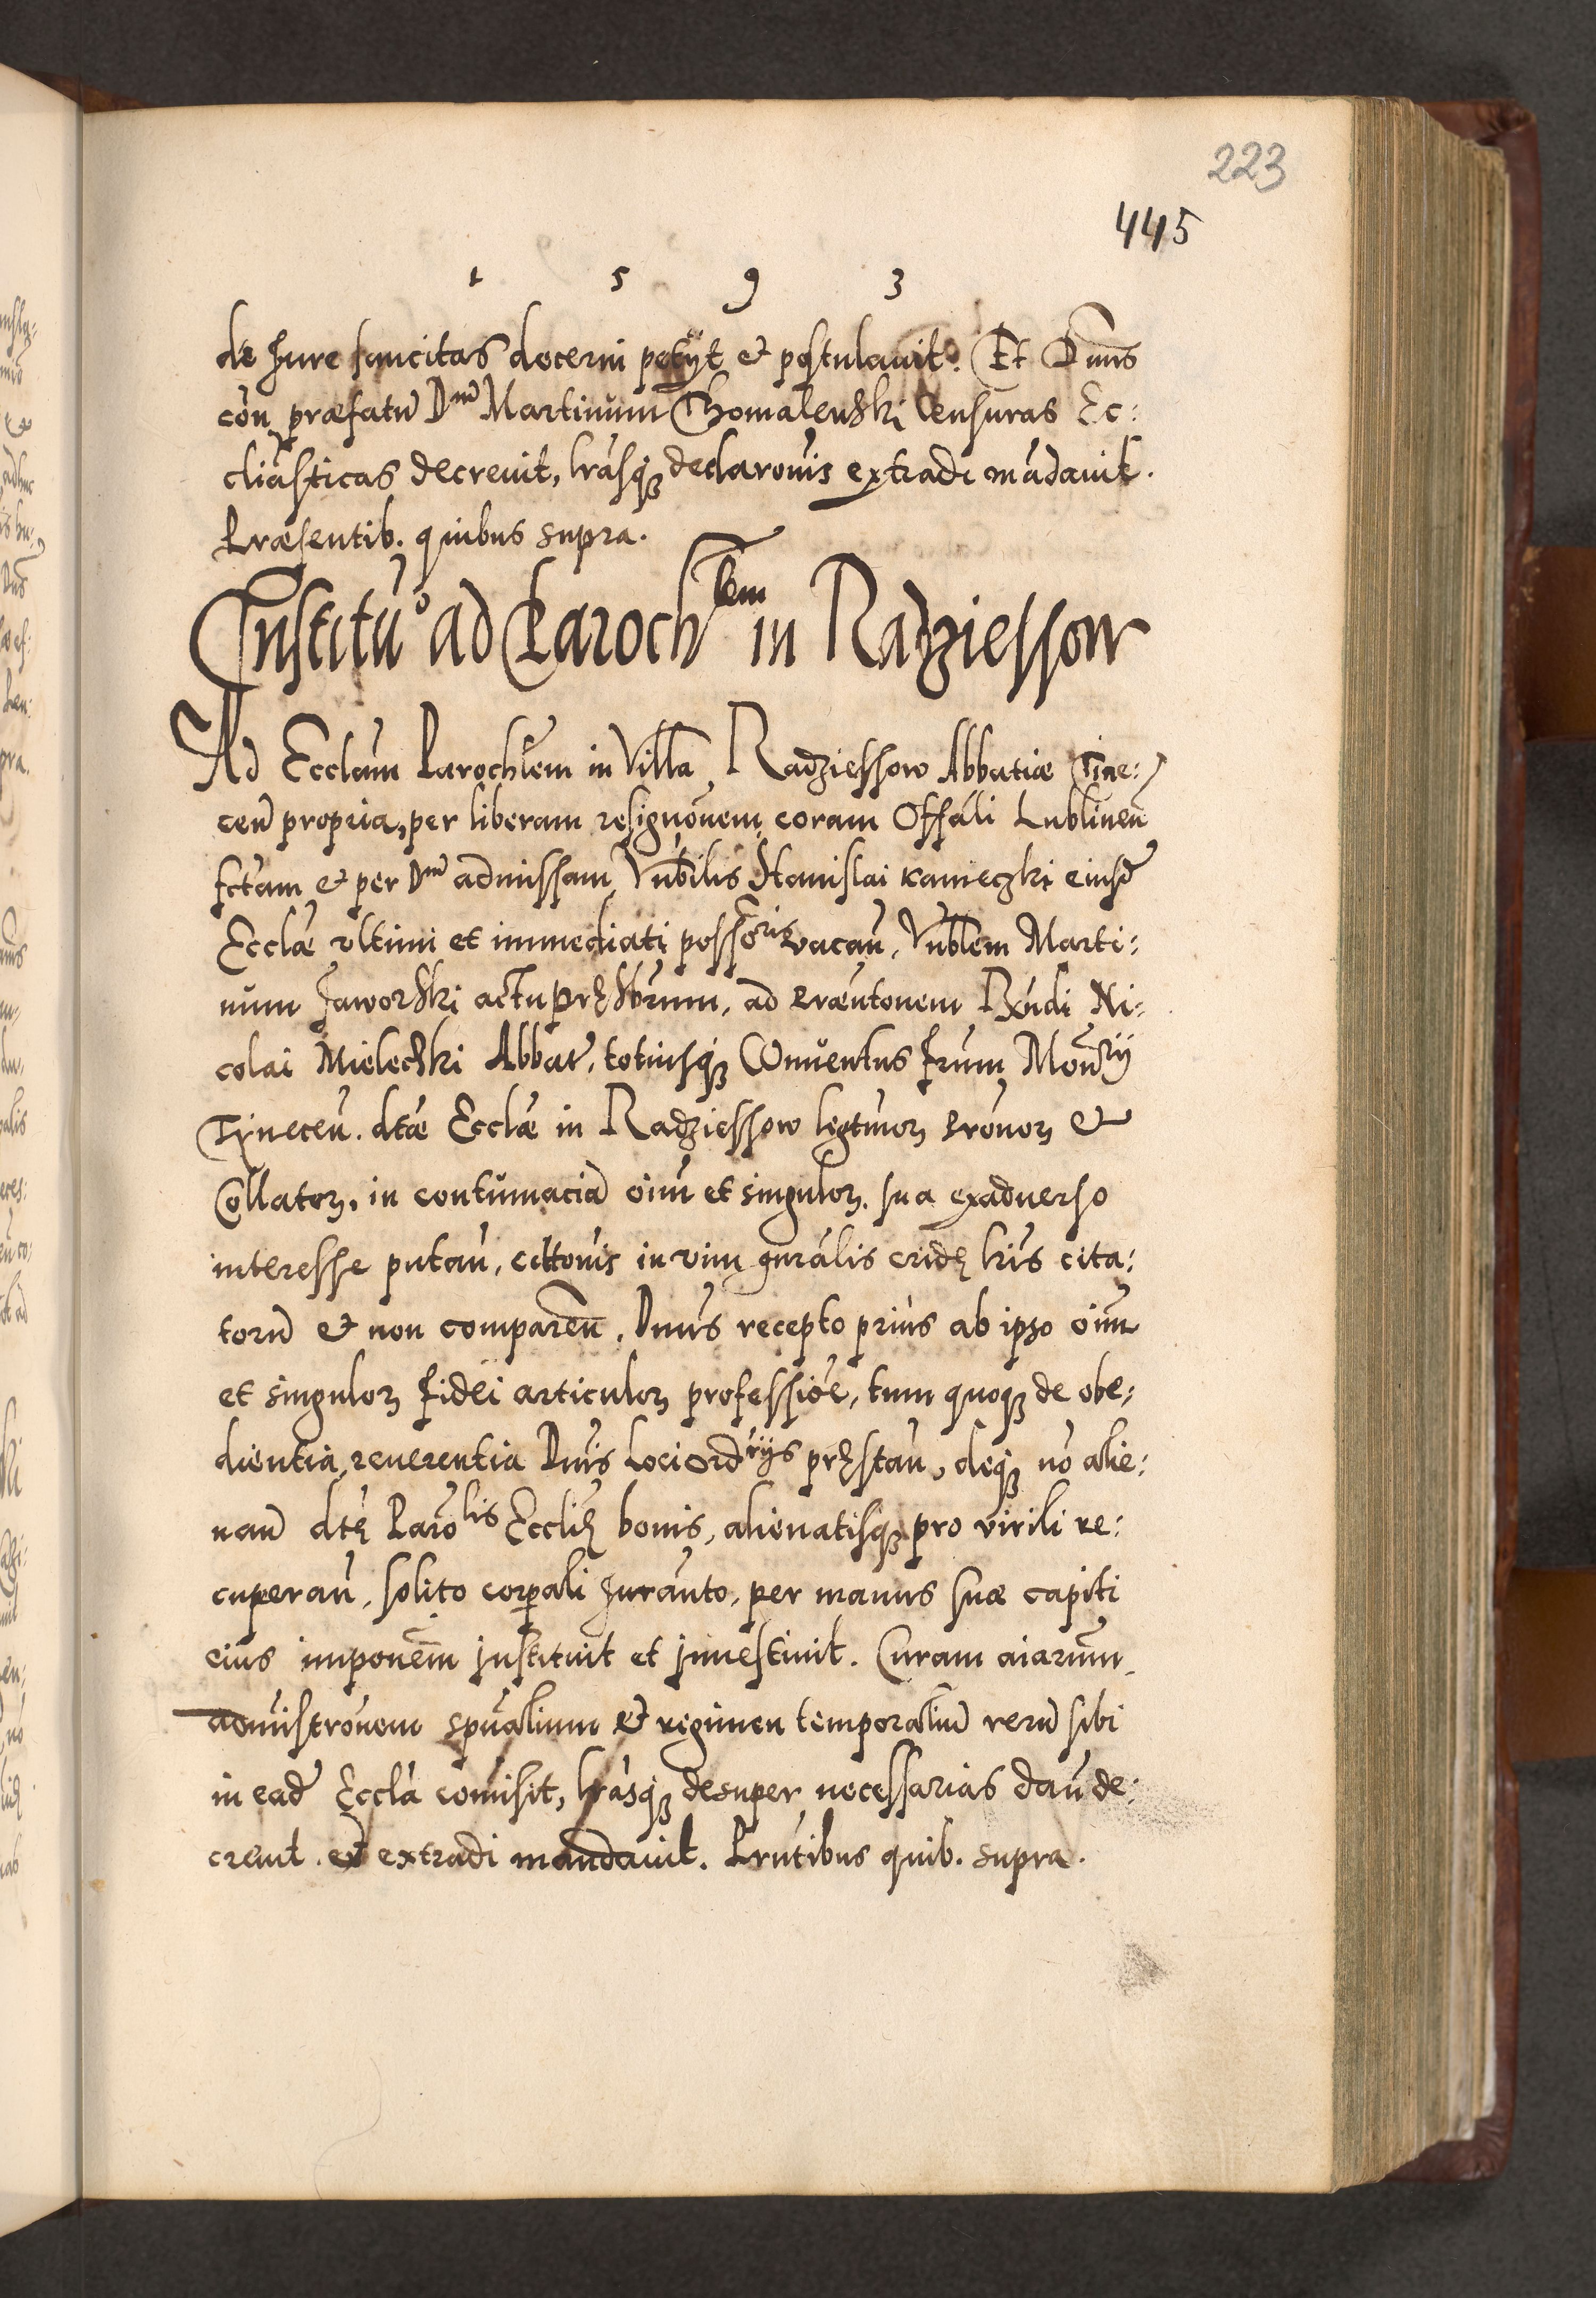 223
445
1 5 9 3
de Jure sancitas decerni petyt et postulauit. Et Dnus
con præfatũ Dnũ Martinum Chomaleński Censuras Ec:
cliasticas decreuit, lrasq declaronis extradi mãdauit.
Præsentib. quibus supra.
Institũo ad Parochlem in Radziessow
Ad Ecclam Parochlem in Villa Radziessow Abbatiæ Tine:
ceñ propria, per liberam resignonem coram Offali Lublineñ
fctam et per Dnũ admissam Vnbilis Stanislai Kamieczki eiusd
Ecclæ vltimi et immediati possoris vacañ, Vnblem Marti:
num Jaworski actu pręsbrum, ad præntonem Rxndi Ni:
colai Mielecski Abbat, totiusq Conuentus frum Monrij
Tyneceñ. dtæ Ecclæ in Radziessow legtmor pronor et
Collator, in contumacia oim et singulor. sua exaduerso
interesse putañ, ecttonis in vim gnralis cridę lris cita:
torũ et non compareñ. Dnus recepto prius ab ipso oim
et singulor fidei articulor professioe, tum quoq de obe:
dientia, reuerentia Dnis loci Ordrijs pręstañ, deq nõ alie:
nañ dtę Parolis Ecclię bonis, alienatisq pro virili re:
cuperañ, solito corpali Juranto, per manus suæ capiti
eius imponem Jnstituit et jnuestiuit. Curam aiarum
admistronem spualium et regimen temporaliũ rerũ sibi
in ead Eccla comisit, lrasq desuper necessarias dañ de:
creuit et extradi mandauit. Prntibus quib. supra.